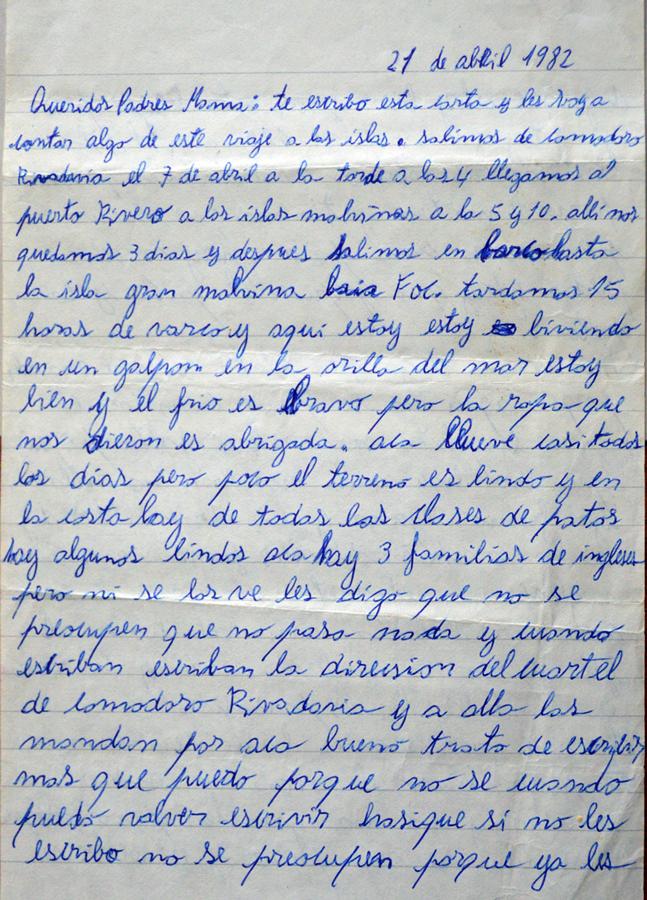 21 de abril 1982
Queridos Padres Mama: te escribo esta carta y les voy a
contar algo de este viaje a las islas. salimos de comodoro
Rivadavia el 7 de abril a la tarde a las 4 llegamos al
puerto Rivero a las islas malvinas a la 5 y 10. alli nos
quedamos 3 dias y despues salimos en barco hasta
la isla gran malvina baia Fox. tardamos 15
horas de varco y aqui estoy estoy biviendo
en un galpon en la orilla del mar estoy
bien y el frio es bravo pero la ropa que
nos dieron es abrigada. aca llueve casi todos
los días pero poco el terreno es lindo y en
la costa hay de todas las clases de patos
hay algunos lindos aca hay 3 familias de ingleses
pero ni se los ve les digo que no se
preocupen que no pasa nada y cuando
escriban escriban la direcsion del cuartel
de comodoro Rivadavia y a alla las
mandan por aca bueno trato de escribir
mas que puedo porque no se cuando
puedo volver escrivir hasique si no les
escribo no se preocupen porque ya les